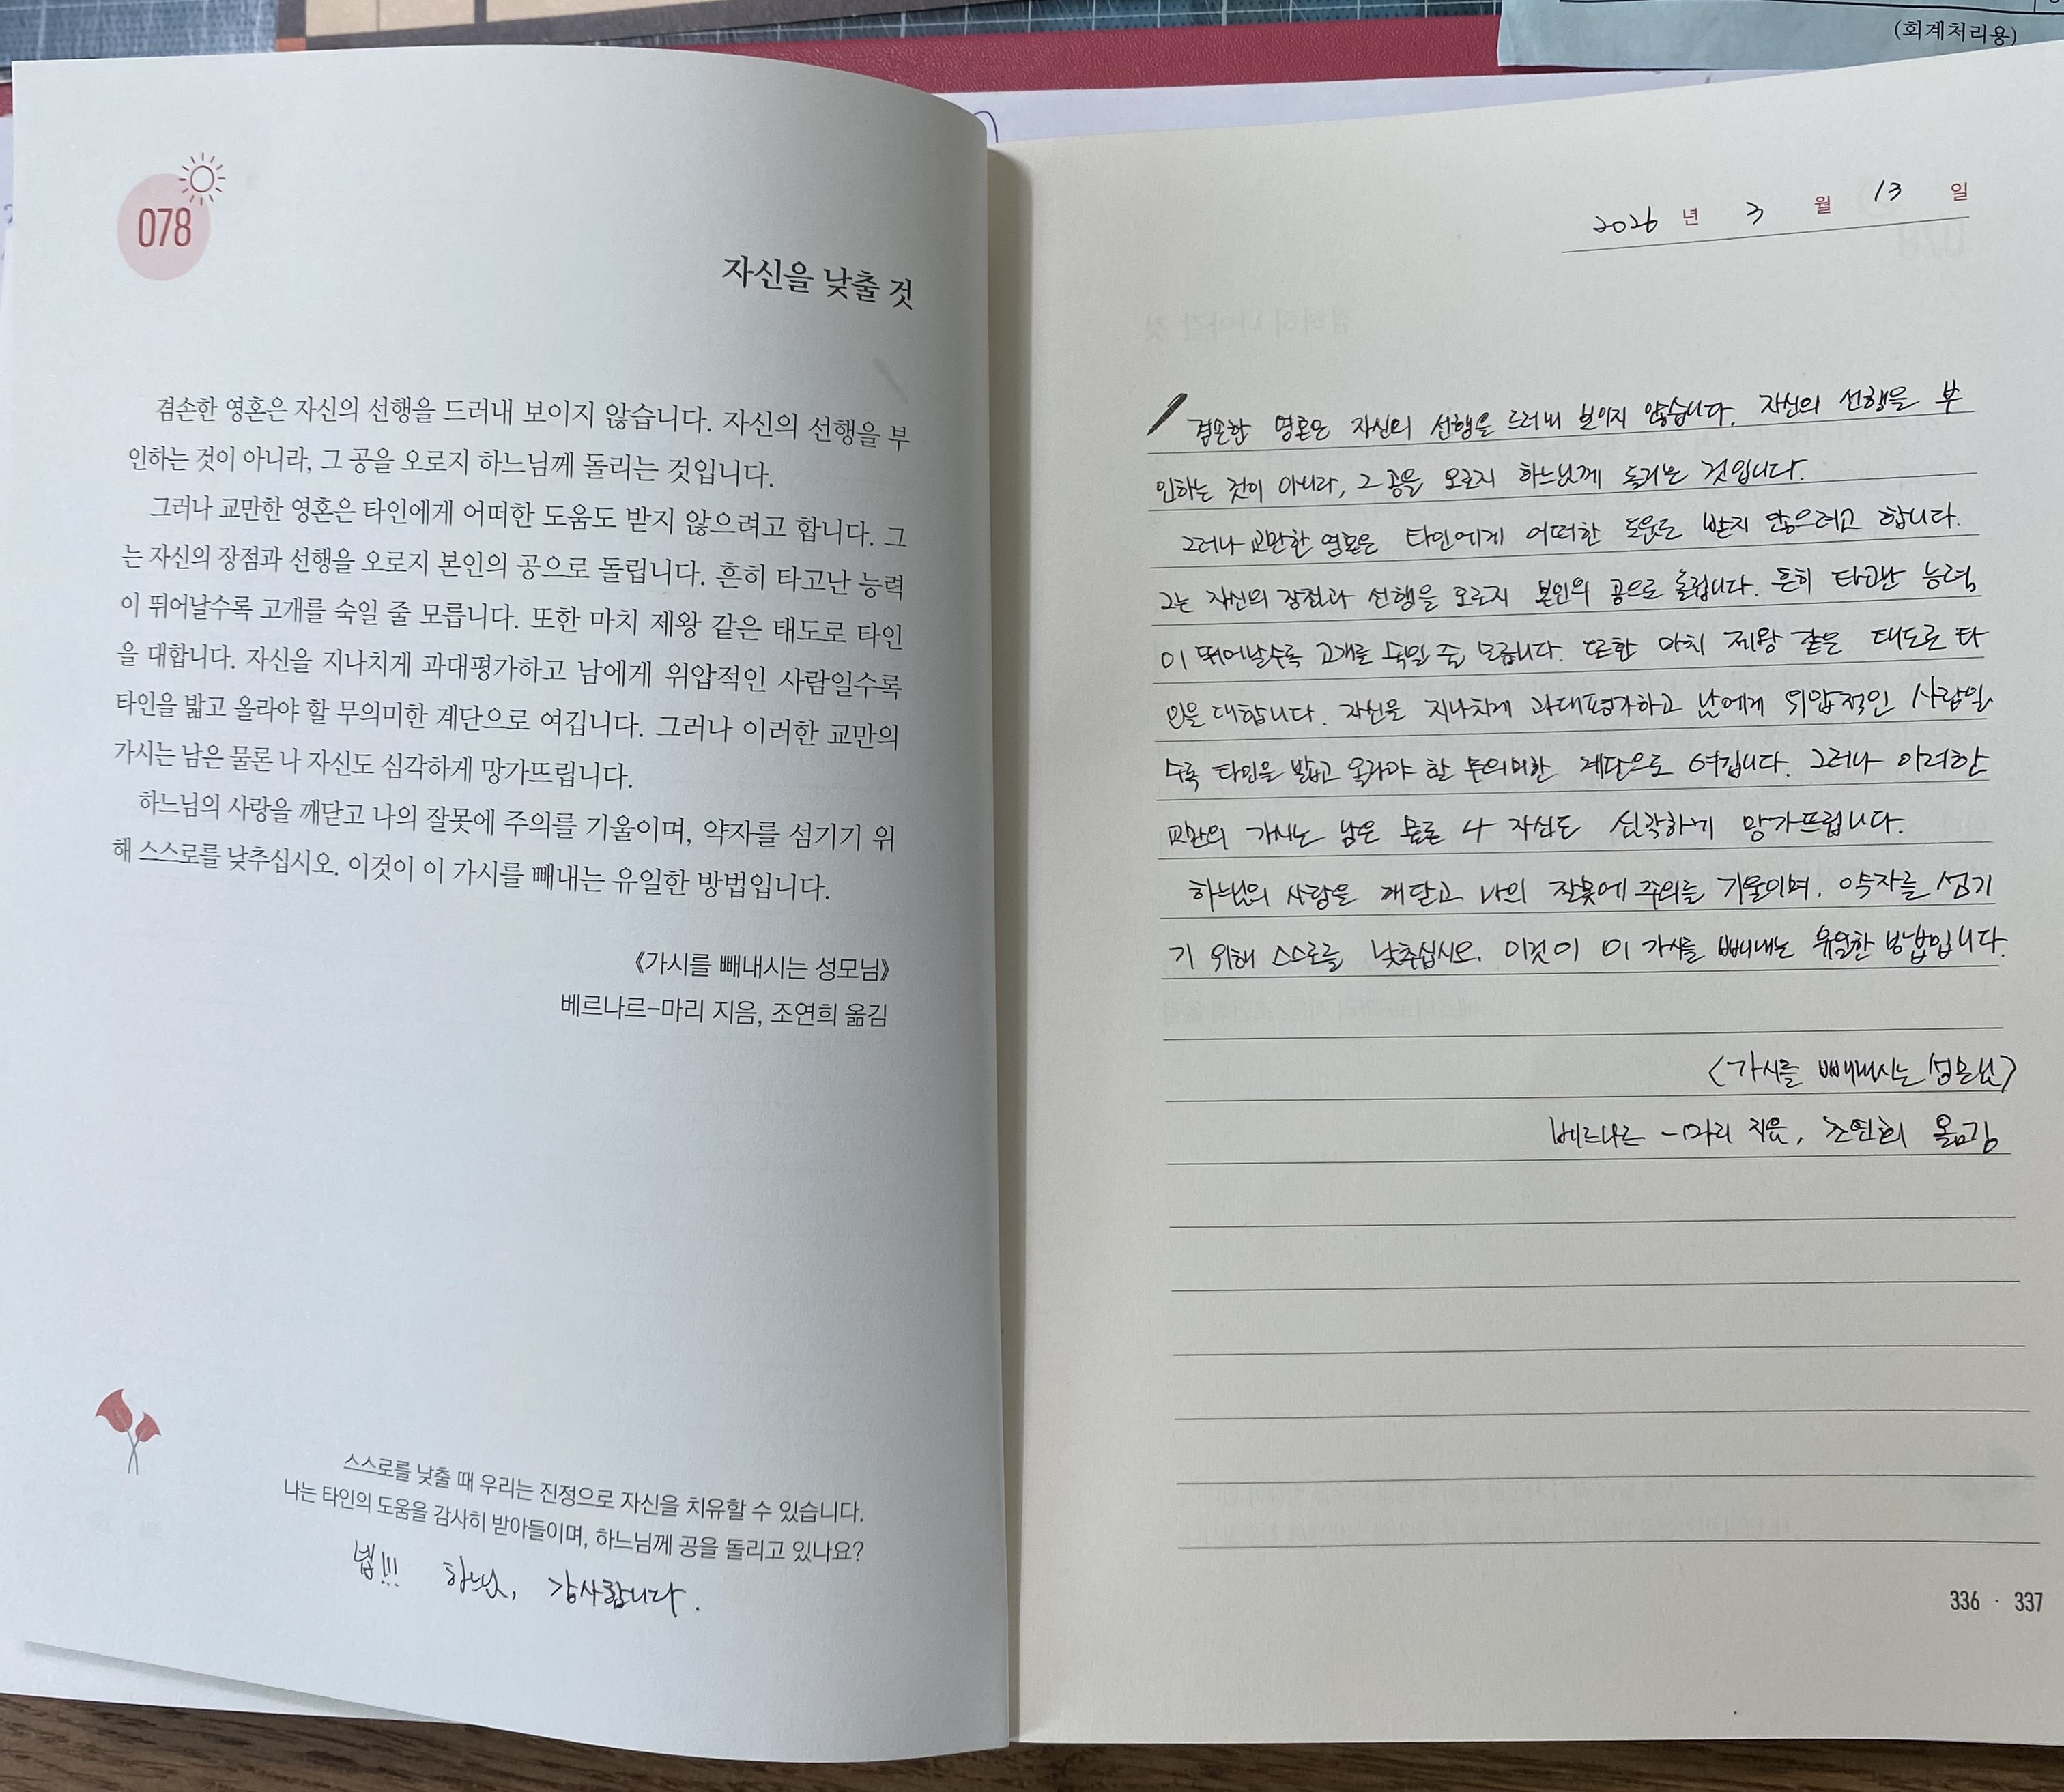 (회계처리용)
078
자신을 낮출 것
겸손한 영혼은 자신의 선행을 드러내 보이지 않습니다. 자신의 선행을 부
인하는 것이 아니라, 그 공을 오로지 하느님께 돌리는 것입니다.
그러나 교만한 영혼은 타인에게 어떠한 도움도 받지 않으려고 합니다. 그
는 자신의 장점과 선행을 오로지 본인의 공으로 돌립니다. 흔히 타고난 능력
이 뛰어날수록 고개를 숙일 줄 모릅니다. 또한 마치 제왕 같은 태도로 타인
을 대합니다. 자신을 지나치게 과대평가하고 남에게 위압적인 사람일수록
타인을 밟고 올라야 할 무의미한 계단으로 여깁니다. 그러나 이러한 교만의
가시는 남은 물론 나 자신도 심각하게 망가뜨립니다.
하느님의 사랑을 깨닫고 나의 잘못에 주의를 기울이며, 약자를 섬기기 위
해 스스로를 낮추십시오. 이것이 이 가시를 빼내는 유일한 방법입니다.
《가시를 빼내시는 성모님》
베르나르-마리 지음, 조연희 옮김
스스로를 낮출 때 우리는 진정으로 자신을 치유할 수 있습니다.
나는 타인의 도움을 감사히 받아들이며, 하느님께 공을 돌리고 있나요?
넵!!! 하느님, 감사합니다.
2026 년 3 월 13 일
겸손한 영혼은 자신의 선행을 드러내 보이지 않습니다. 자신의 선행을 부
인하는 것이 아니라, 그 공을 오로지 하느님께 돌리는 것입니다.
그러나 교만한 영혼은 타인에게 어떠한 도움도 받지 않으려고 합니다.
그는 자신의 장점과 선행을 오로지 본인의 공으로 돌립니다. 흔히 타고난 능력
이 뛰어날수록 고개를 숙일 줄 모릅니다. 또한 마치 제왕 같은 태도로 타
인을 대합니다. 자신을 지나치게 과대평가하고 남에게 위압적인 사람일
수록 타인을 밟고 올라야 할 무의미한 계단으로 여깁니다. 그러나 이러한
교만의 가시는 남은 물론 나 자신도 심각하게 망가뜨립니다.
하느님의 사랑을 깨닫고 나의 잘못에 주의를 기울이며, 약자를 섬기
기 위해 스스로를 낮추십시오. 이것이 이 가시를 빼내는 유일한 방법입니다.
<가시를 빼내시는 성모님>
베르나르-마리 지음, 조연희 옮김
336 · 337